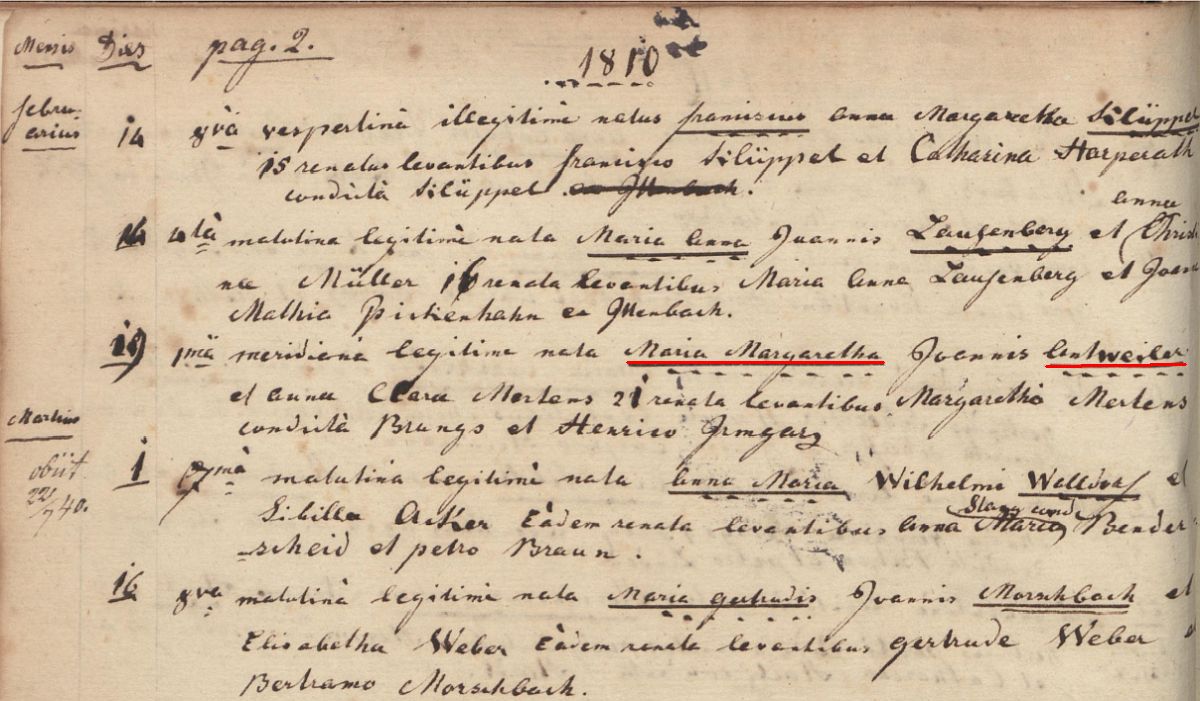 Mensis Dies pag. 2.
1810
febru-
arius 14 8va vespertinà illegitimè natus franciscus anna Margaretha Silüppel
15 renatus levantibus francisco Silüppel et Catharina Harperath
condictà Silüppel ex Ittenbach.
anna
16 4tà matutina legitimè nata Maria anna Joannis Laufenberg et Christi
na Müller 16 renata levantibus Maria anna Laufenberg et Joann
Mathia Pickenhahn ex Ittenbach.
19 1mâ meridianà legitime nata Maria Margaretha Joannis antweiler
et anna Clara Mertens 21 renata levantibus Margarethà Mertens
condictà Brungs et Henrico Irmgarz
Martius
obiit
22/7 40.
1 7mà matutinà legitimè nata anna Maria Wilhelmi Wallova et
Stang cond
Sibilla Acker Eàdem renata levantibus anna Maria Bender-
scheid et petro Braun.
16 8va matutinà legitimè nata Maria gertrudis Joannis Morschbach et
Elisabetha Weber Eàdem renata levantibus gertrude Weber et
Bertramo Morschbach.